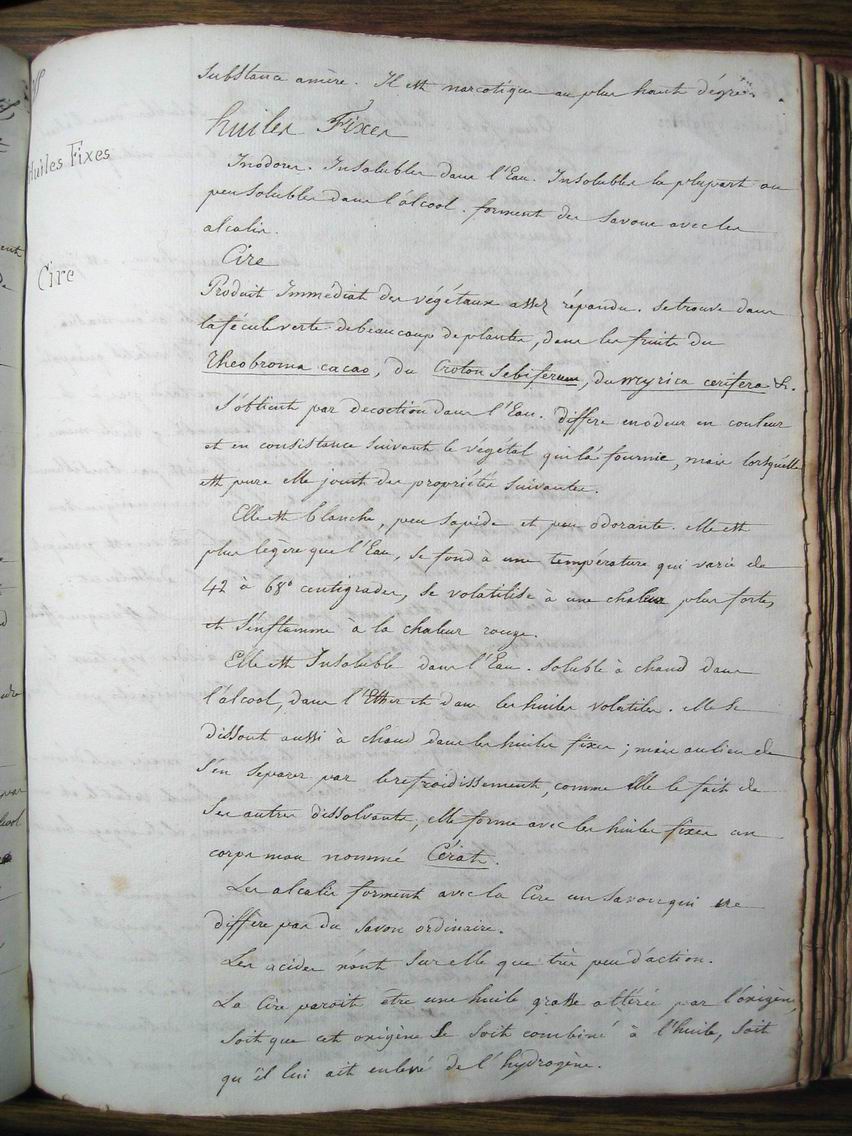 Substance amère. Il est narcotique au plus haut dégré.
huiles Fixes
Huiles Fixes
Inodores. Insolubles dans l'Eau. Insolubles la plupart ou
peu solubles dans l'álcool. forment des savons avec les
alcalis.
Cire
Cire
Produit Immédiat des végétaux assez répandu. se trouve dans
la fécule verte de beaucoup de plantes, dans les fruits du
Theobroma cacao, du Croton Sebiferum, du myrica cerifera &.
S'obtient par decoction dans l'Eau. differe en odeur en couleur
et en consistance suivant le végétal qui l'a fournie, mais lorsqu'elle
est pure elle jouit des propriétés suivantes.
Elle est blanche, peu sapide et peu odorante. elle est
plus legère que l'Eau, se fond à une température qui varie de
42 à 68° centigrades, se volatilise à une chaleur plus forte,
et s'enflamme à la chaleur rouge.
Elle est Insoluble dans l'Eau. soluble à chaud dans
l'álcool, dans l'Ether et dans les huiles volatiles. elle se
dissout aussi à chaud dans les huiles fixes ; mais au lieu de
s'en separer par le refroidissement, comme elle le fait de
ses autres dissolvants, elle forme avec les huiles fixes un
corps mou nommé Cérat.
Les alcalis forment avec la Cire un savon qui ne
differe pas du savon ordinaire.
Les acides n'ont sur elle que très peu d'action.
La Cire paroit être une huile grasse altérée par l'oxigène,
soit que cet oxigène se soit combiné à l'huile, soit
qu'il lui ait enlevé de l'hydrogène.